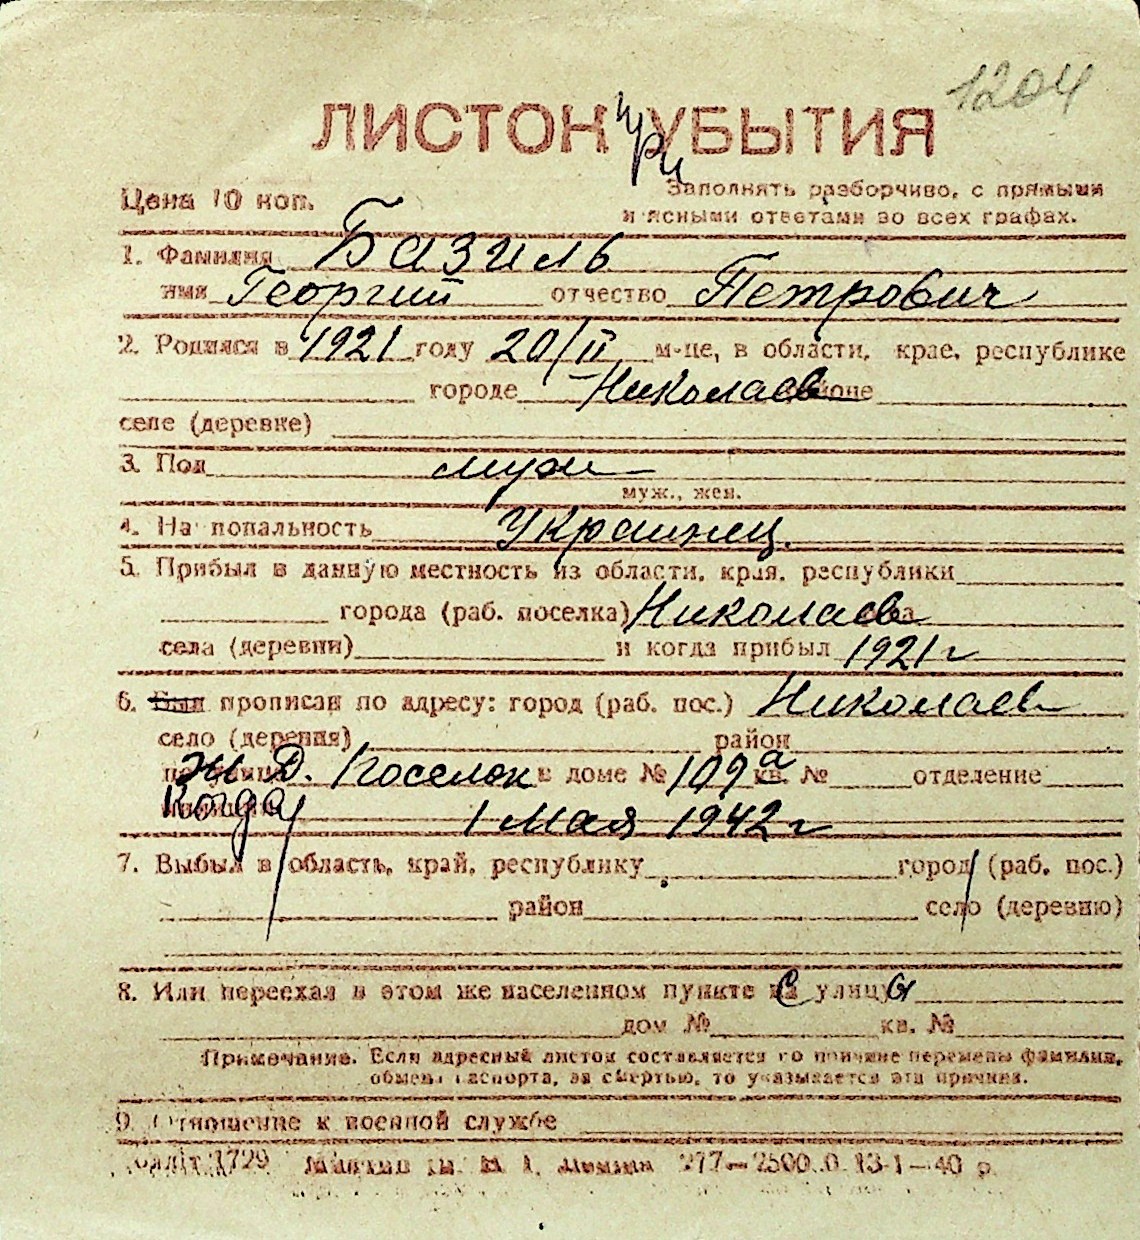 1204
ЛИСТОК при УБЫТИЯ
Цена 10 коп.
Заполнять разборчиво, с прямыми
и ясными ответами во всех графах.
1. Фамилия Базиль
имя Георгий отчество Петрович
2. Родился в 1921 году 20/II м-це, в области, крае, республике
городе Николаев районе
селе (деревне)
3. Пол муж
муж., жен.
4. Национальность Украинец.
5. Прибыл в данную местность из области, края, республики
города (раб. поселка) Николаев
села (деревни) и когда прибыл 1921 г
6. Был прописан по адресу: город (раб. пос.) Николаев
село (деревня) район
Ж. Д. Поселок в доме № 109а кв. № отделение
Когда 1 Мая 1942 г
7. Выбыл в область, край, республику город (раб. пос.)
район село (деревню)
8. Или переехал в этом же населенном пункте с улицы
дом № кв. №
Примечание. Если адресный листок составляется по причине перемены фамилии,
обмена паспорта, за смертью, то указывается эта причина.
9. Отношение к военной службе
1729 277—2500 13-1—40 р.